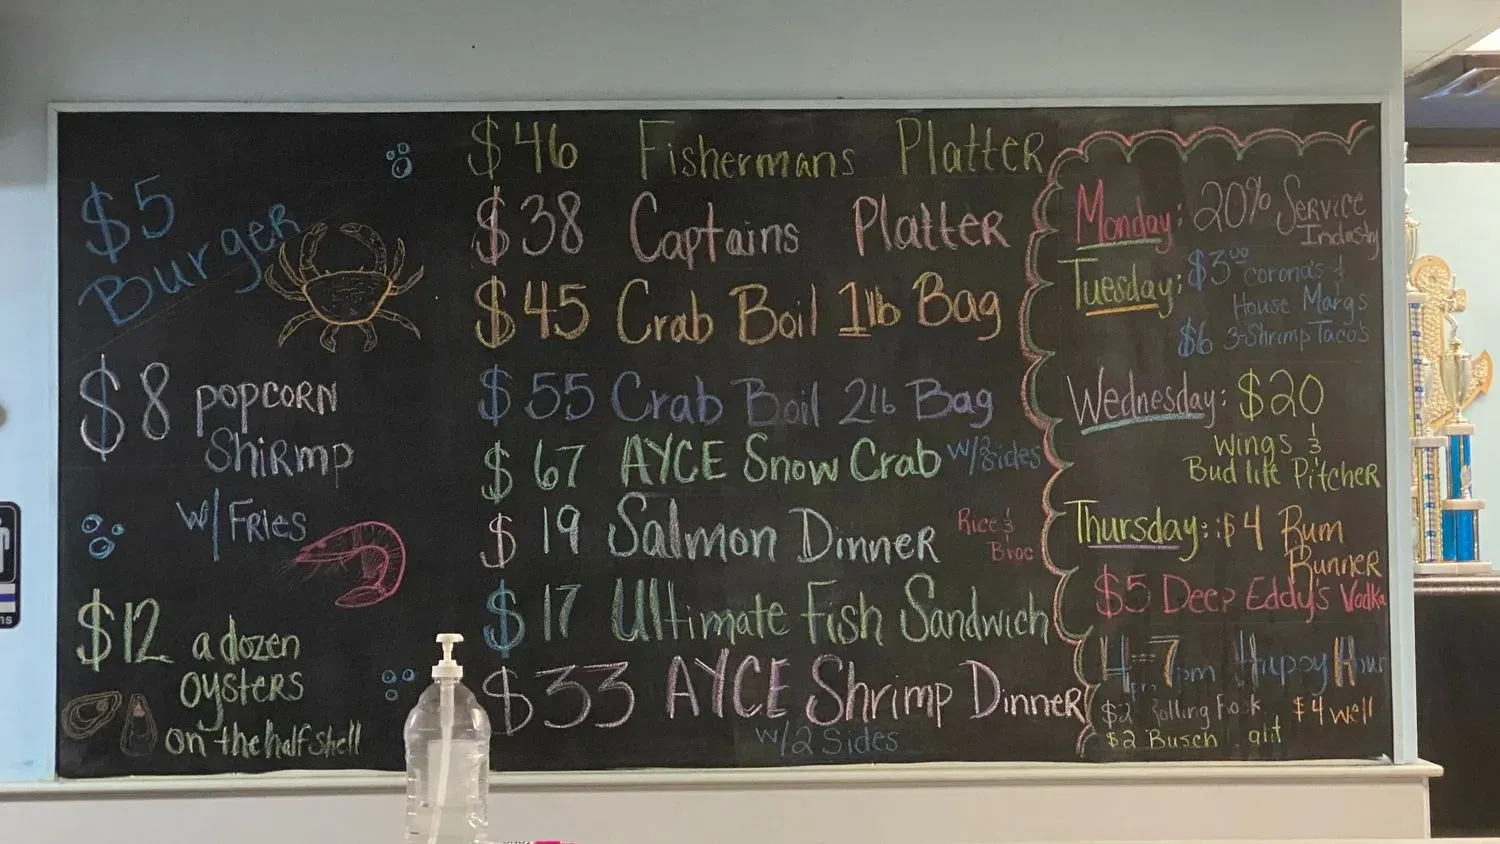 $5
Burger
$8 POPCORN
ShiRmp
w/ FRies
$12 a dozen
oysters
on the half shell
$46 Fishermans PlatteR
$38 Captains PlatteR
$45 Crab Boil 1lb Bag
$55 Crab Boil 2lb Bag
$67 AYCE Snow Crab w/2sides
$19 Salmon DinneR Rice &
Broc
$17 Ultimate Fish Sandwich
$33 AYCE Shrimp DinneR
w/2 Sides
Monday: 20% SeRvice
Industry
Tuesday: $3⁰⁰ corona's &
House Margs
$6 3-Shrimp Tacos
Wednesday: $20
Wings &
Bud lite Pitcher
Thursday: $4 Rum
Runner
$5 Deep Eddy's Vodka
4pm-7pm Happy Hour
$2 Rolling Rock $4 well
$2 Busch Light
ns